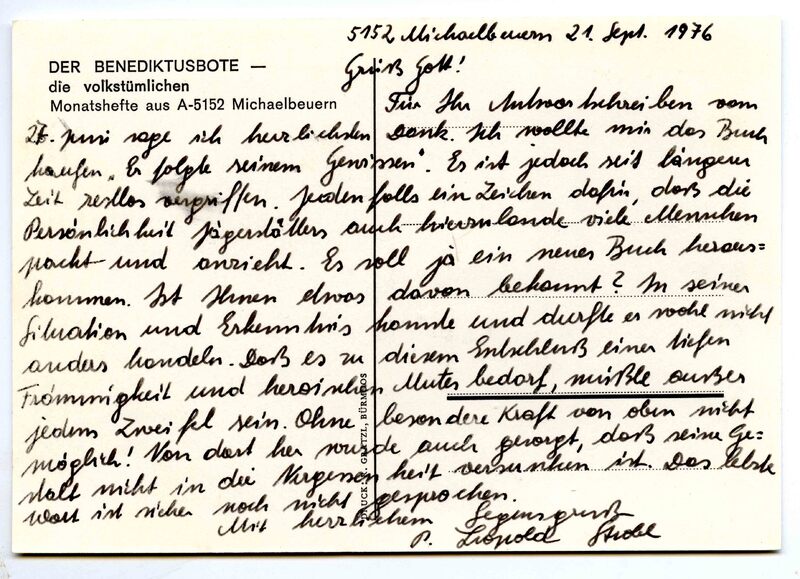 5152 Michaelbeuern 21. Sept. 1976
DER BENEDIKTUSBOTE —
die volkstümlichen
Monatshefte aus A-5152 Michaelbeuern
Grüß Gott!
Für Ihr Antwortschreiben vom
27. Juni sage ich herzlichsten Dank. Ich wollte mir das Buch
kaufen „Er folgte seinem Gewissen". Es ist jedoch seit längerer
Zeit restlos vergriffen. Jedenfalls ein Zeichen dafür, daß die
Persönlichkeit Jägerstätters auch hierzulande viele Menschen
packt und anzieht. Es soll ja ein neues Buch heraus=
kommen. Ist Ihnen etwas davon bekannt? In seiner
Situation und Erkenntnis konnte und durfte er wohl nicht
anders handeln. Daß es zu diesem Entschluß einer tiefen
Frömmigkeit und heroischen Mutes bedarf, müßte außer
jedem Zweifel sein. Ohne besondere Kraft von oben nicht
möglich! Von dort her wurde auch gesorgt, daß seine Ge=
stalt nicht in die Vergessenheit versunken ist. Das letzte
Wort ist sicher noch nicht gesprochen.
Mit herzlichem Segensgruß
P. Leopold Strobl
DRUCK: R. GRETZL, BÜRMOOS